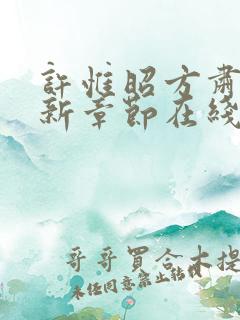 許惟昭方肅
新章節在綫
哥哥買合木提
未經同意禁止轉載